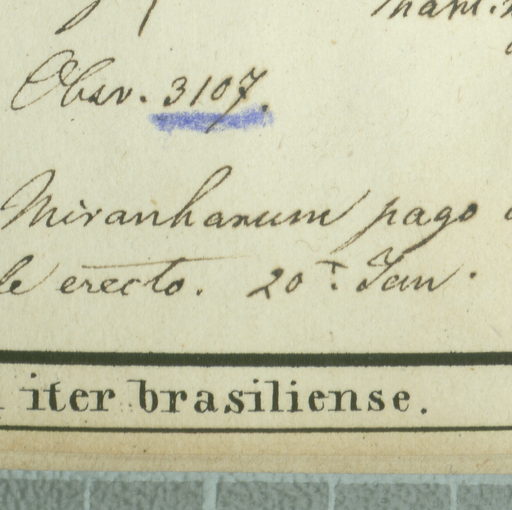 Obsv. 3107.
Miranharum pago
erecto. 20. Jan.
iter brasiliense.